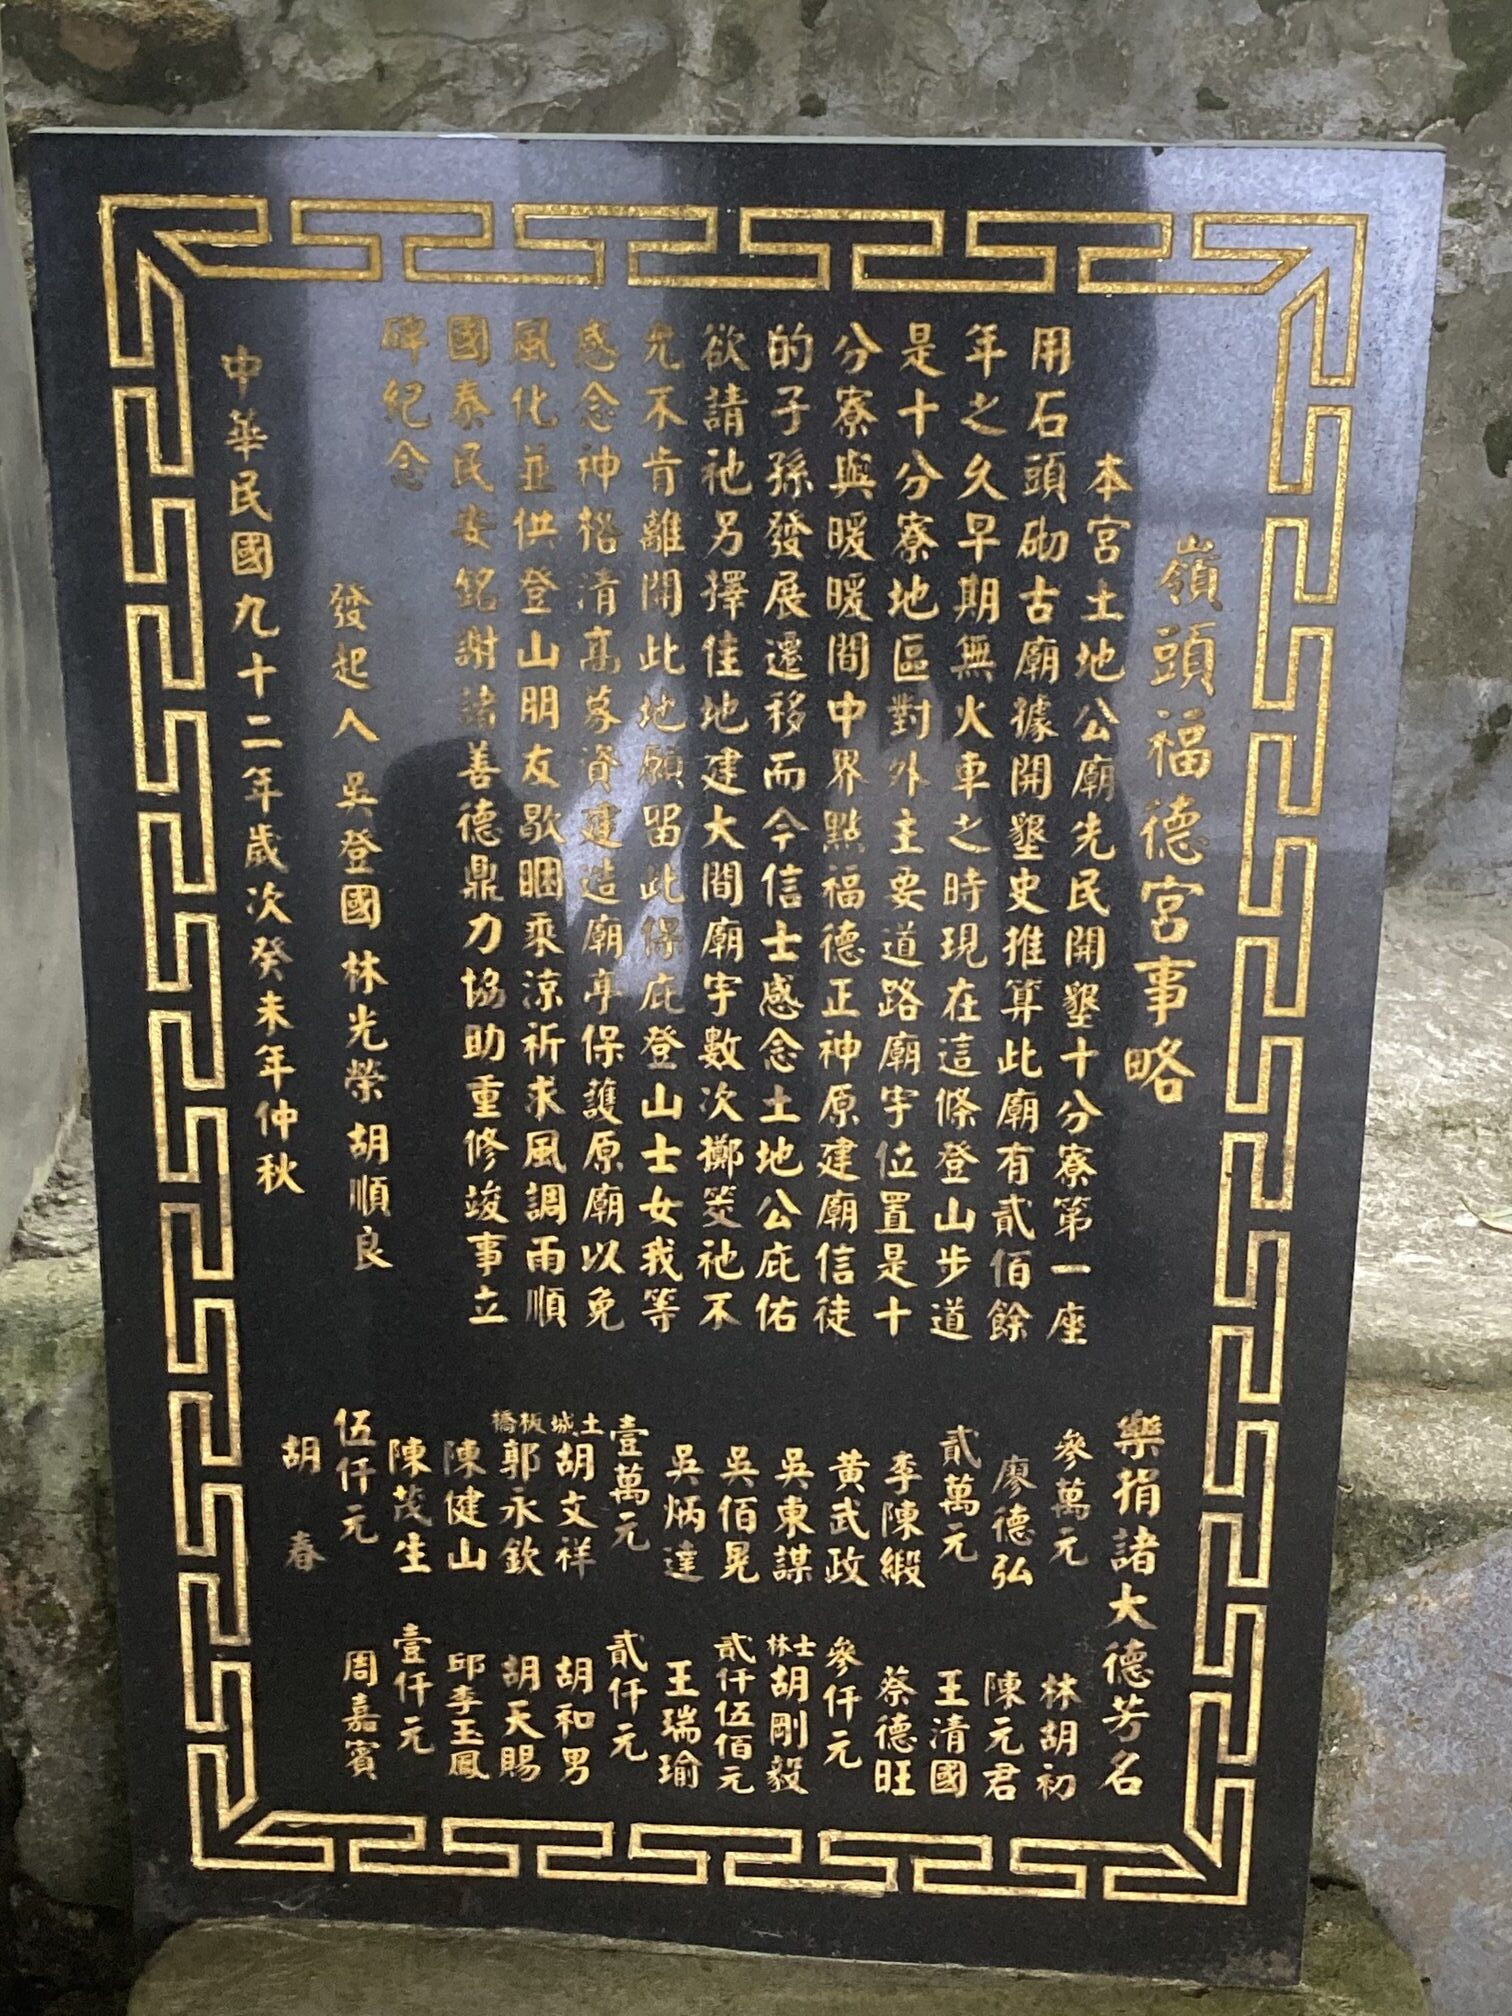 嶺頭福德宮事略
本宮土地公廟先民開墾十分寮第一座
用石頭砌古廟據開墾史推算此廟有貳佰餘
年之久早期無火車之時現在這條登山步道
是十分寮地區對外主要道路廟宇位置是十
分寮與暖暖間中界點福德正神原建廟信徒
的子孫發展遷移而今信士感念土地公庇佑
欲請祂另擇佳地建大間廟宇數次擲筊祂不
允不肯離開此地願留此保庇登山士女我等
感念神格清高募資建造廟亭保護原廟以免
風化並供登山朋友歇睏乘涼祈求風調雨順
國泰民安銘謝諸善德鼎力協助重修竣事立
碑紀念
發起人 吳登國 林光榮 胡順良
中華民國九十二年歲次癸未年仲秋
樂捐諸大德芳名
參萬元
廖德弘
貳萬元
李陳緞
黃武政
吳東謀
吳佰晃
吳炳達
壹萬元
土城 胡文祥
板橋 郭永欽
陳健山
陳茂生
伍仟元
胡春
林胡初
陳元君
王清國
蔡德旺
參仟元
士林 胡剛毅
貳仟伍佰元
王瑞瑜
貳仟元
胡和男
胡天賜
邱李玉鳳
壹仟元
周嘉賓